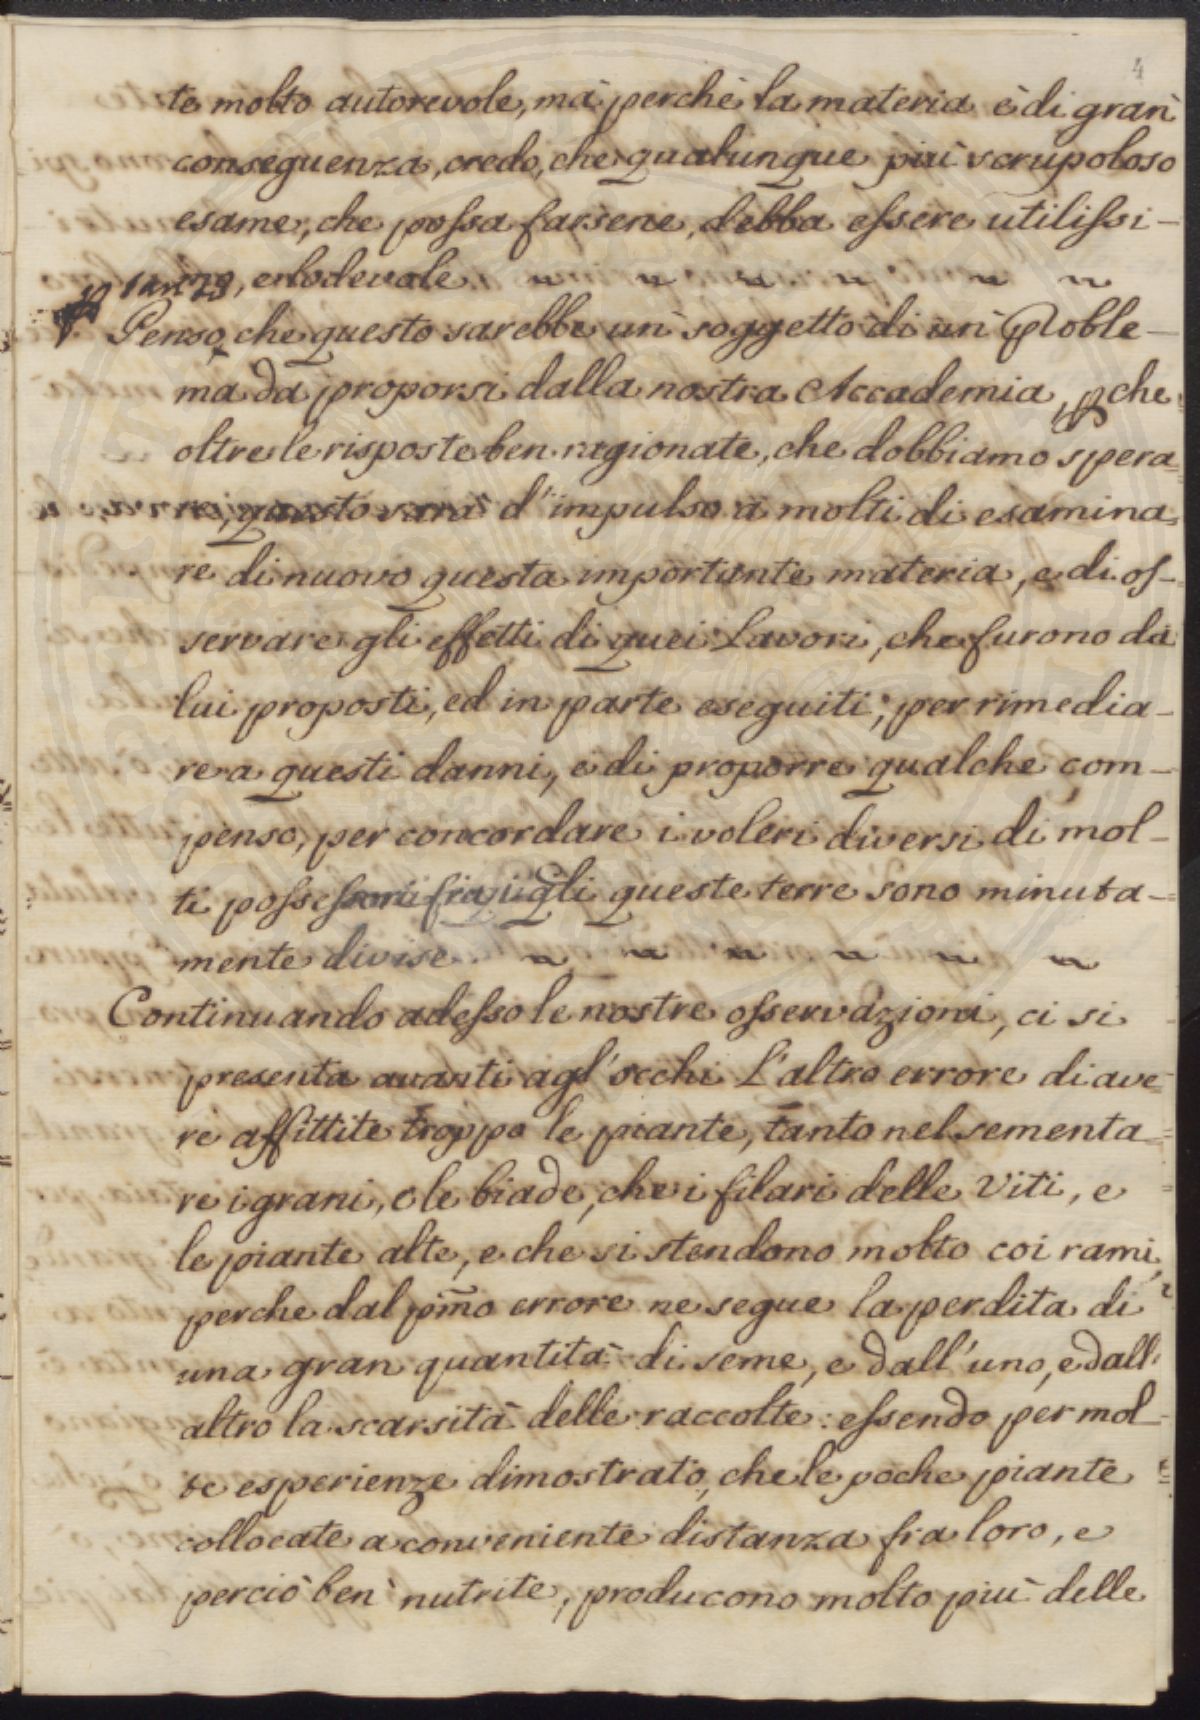 4
te molto autorevole, mà perchè la materia è di gran
conseguenza, credo, che qualunque più scrupoloso
esame, che possa farsene, debba essere utilissi-
, e lodevole
Penso, che questo sarebbe un soggetto di un Proble-
ma da proporsi dalla nostra Accademia, pche
oltre le risposte ben ragionate, che dobbiamo spera=
re, questo d'impulso à molti di esamina=
re di nuovo questa importante materia, e di os-
servare gli effetti di quei Lavori, che furono da
lui proposti, ed in parte eseguiti; per rimedia-
re a questi danni, e di proporre qualche com-
penso, per concordare i voleri diversi di mol-
ti possessori fra i qli queste terre sono minuta-
mente divise.
Continuando adesso le nostre osservazioni, ci si
presenta avanti agl'occhi L'altro errore di ave
re affittite troppo le piante, tanto nel sementa=
re i grani, e le biade, che i filari delle Viti, e
le piante alte, e che si stendono molto coi rami,
perche dal pmo errore ne segue la perdita di
una gran quantità di seme, e dall'uno, e dall'
altro la scarsità delle raccolte: essendo per mol-
te esperienze dimostrato, che le poche piante
collocate a conveniente distanza fra loro, e
perciò ben nutrite, producono molto più delle